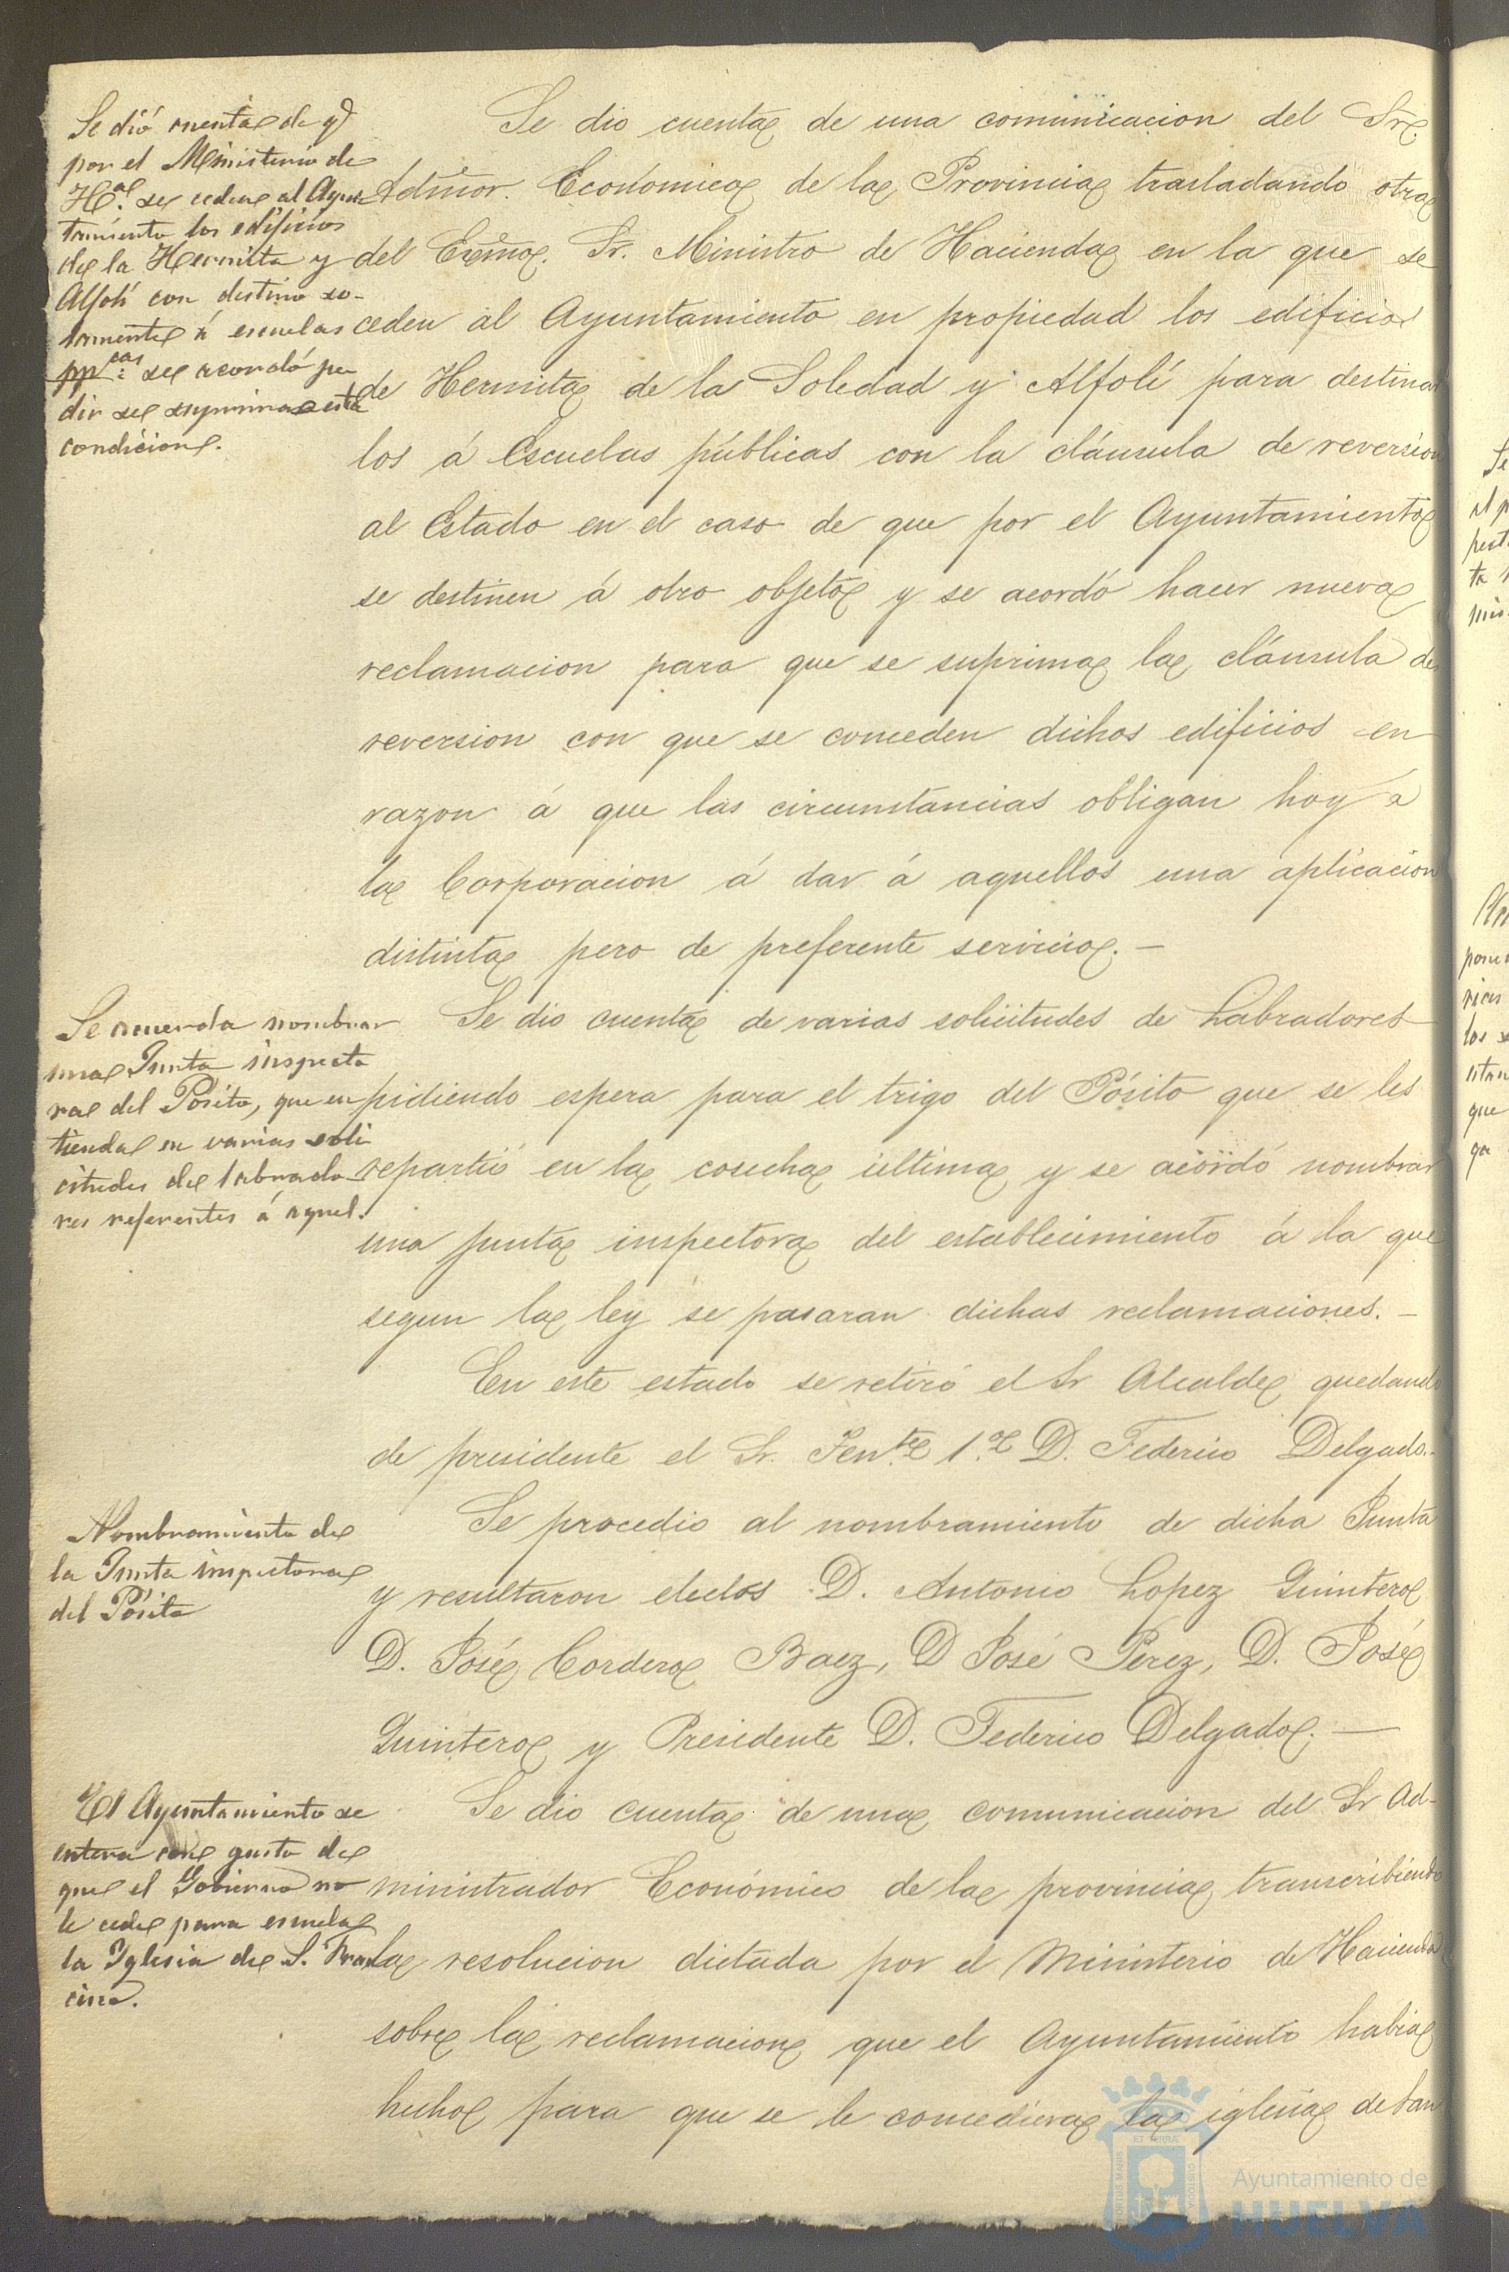 Se dió cuenta de qe
por el Ministerio de
Hda. se ceden al Ayun
tamiento los edificios
de la Hermita y
Alfolí con destino so-
lamente á escuelas
ppcas: se acordó pe
dir se suprima esta
condicion.
Se dio cuenta de una comunicacion del Sr.
Admor. Económico de la Provincia trasladando otra
del Excmo. Sr. Ministro de Hacienda en la que se
ceden al Ayuntamiento en propiedad los edificios
de Hermita de la Soledad y Alfolí para destinar
los á Escuelas públicas con la cláusula de reversion
al Estado en el caso de que por el Ayuntamiento
se destinen á otro objeto y se acordó hacer nueva
reclamacion para que se suprima la cláusula de
reversion con que se conceden dichos edificios en
razon á que las circunstancias obligan hoy á
la Corporacion á dar á aquellos una aplicacion
distinta pero de preferente servicio. —
Se acuerda nombrar
una Junta inspecto
ra del Pósito, que en
tienda en varias soli
citudes de labrado
res referentes á aquel.
Se dio cuenta de varias solicitudes de Labradores
pidiendo espera para el trigo del Pósito que se les
repartió en la cosecha última y se acordó nombrar
una junta inspectora del establecimiento á la que
segun la ley se pasaran dichas reclamaciones. —
En este estado se retiró el Sr Alcalde quedando
de presidente el Sr. Tente. 1.º D. Federico Delgado. -
Nombramiento de
la Junta inspectora
del Pósito
Se procedio al nombramiento de dicha Junta
y resultaron electos D. Antonio Lopez Quintero
D. José Cordero Baez, D José Pérez, D. José
Quintero y Presidente D. Federico Delgado. —
El Ayuntamiento se
entera con gusto de
que el Gobierno no
le cede para escuela
la Iglesia de S. Fran
cisco.
Se dio cuenta de una comunicacion del Sr Ad-
ministrador Económico de la provincia transcribiendo
la resolucion dictada por el Ministerio de Hacienda
sobre la reclamacion que el Ayuntamiento habia
hecho para que se le concediera la iglesia de San
Ayuntamiento de
HUELVA